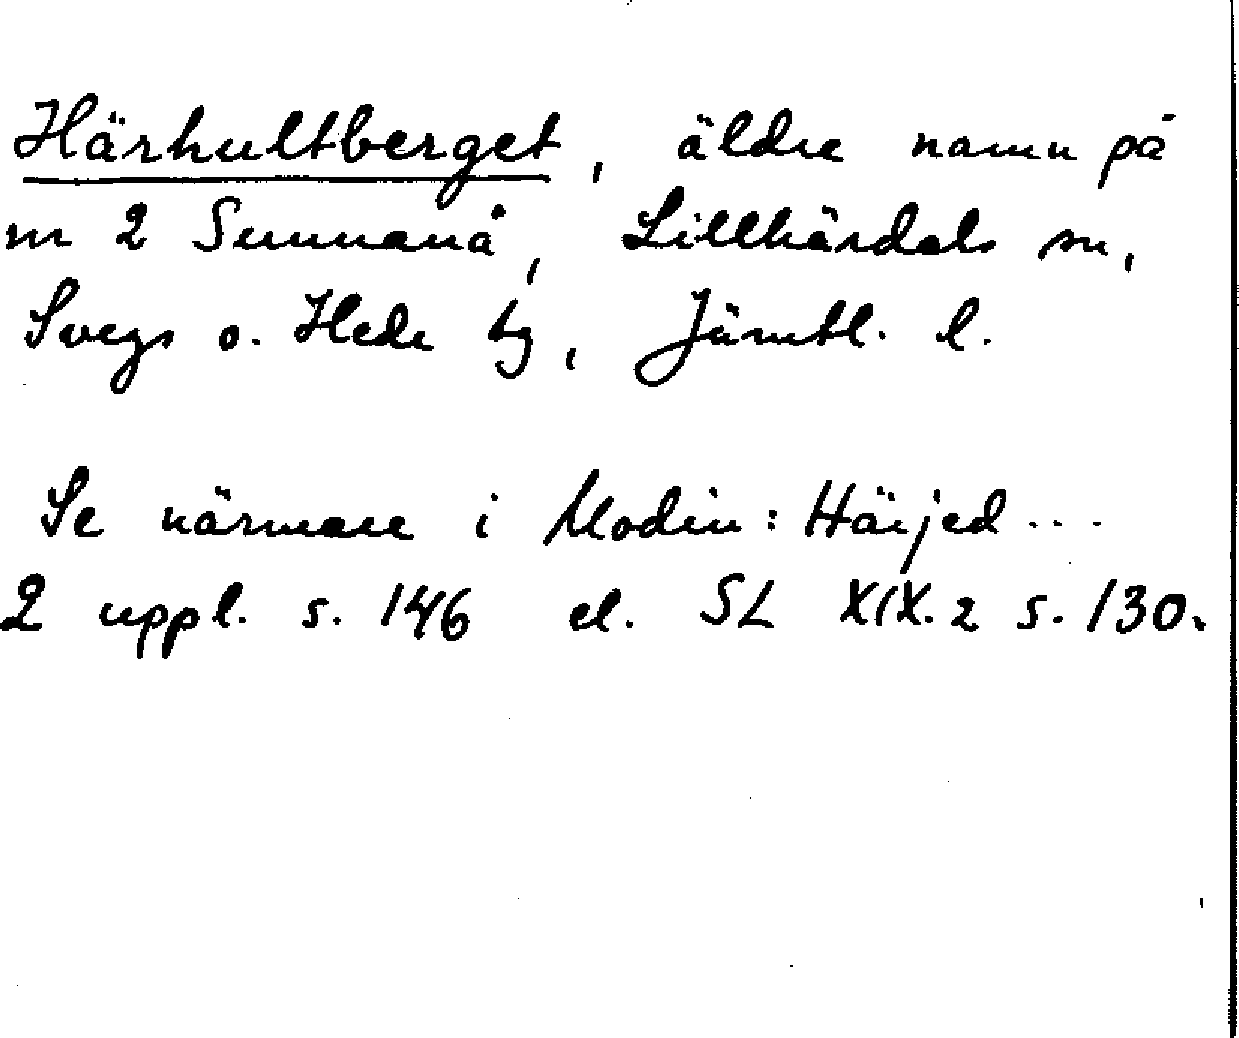 Härhultberget, äldre namn på
nr 2 Sunnanå, Lillhärdals sn,
Svegs o. Hede tg, Jämtl. l.
Se närmare i Modin: Härjed...
2 uppl. s. 146 el. SL XIX.2 s. 130.